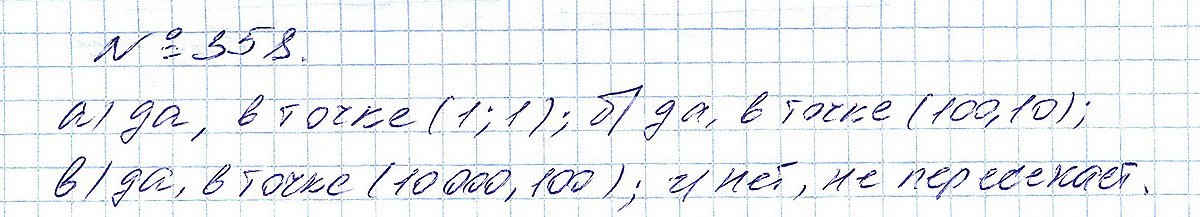 № 358.
а) да, в точке (1; 1); б) да, в точке (100, 10);
в) да, в точке (10000, 100); г) нет, не пересекает.